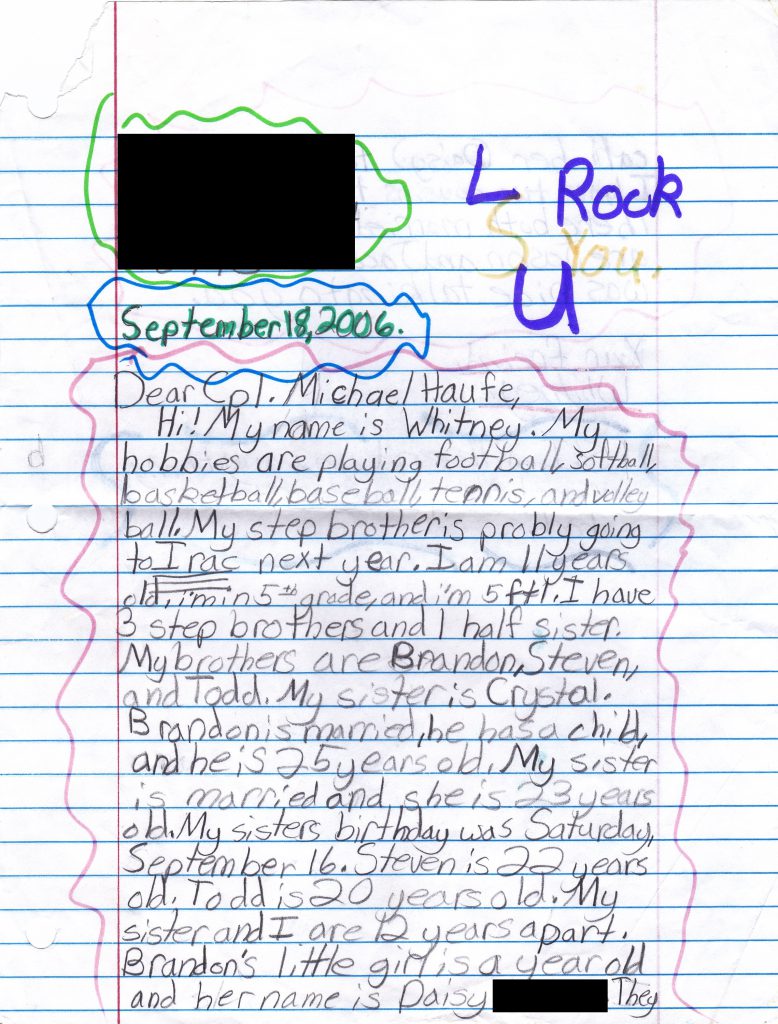 L Rock
S You.
U
September 18, 2006.
Dear Cpl. Michael Haufe,
Hi! My name is Whitney. My
hobbies are playing football, softball,
basketball, baseball, tennis, and volley
ball. My step brother is probly going
to Irac next year. I am 11 years
old, i'm in 5th grade, and i'm 5 ft 1. I have
3 step brothers and 1 half sister.
My brothers are Brandon, Steven,
and Todd. My sister is Crystal.
Brandon is married, he has a child,
and he is 25 years old. My sister
is married and she is 23 years
old. My sisters birthday was Saturday,
September 16. Steven is 22 years
old. Todd is 20 years old. My
sister and I are 12 years apart.
Brandon's little girl is a year old
and her name is Daisy They